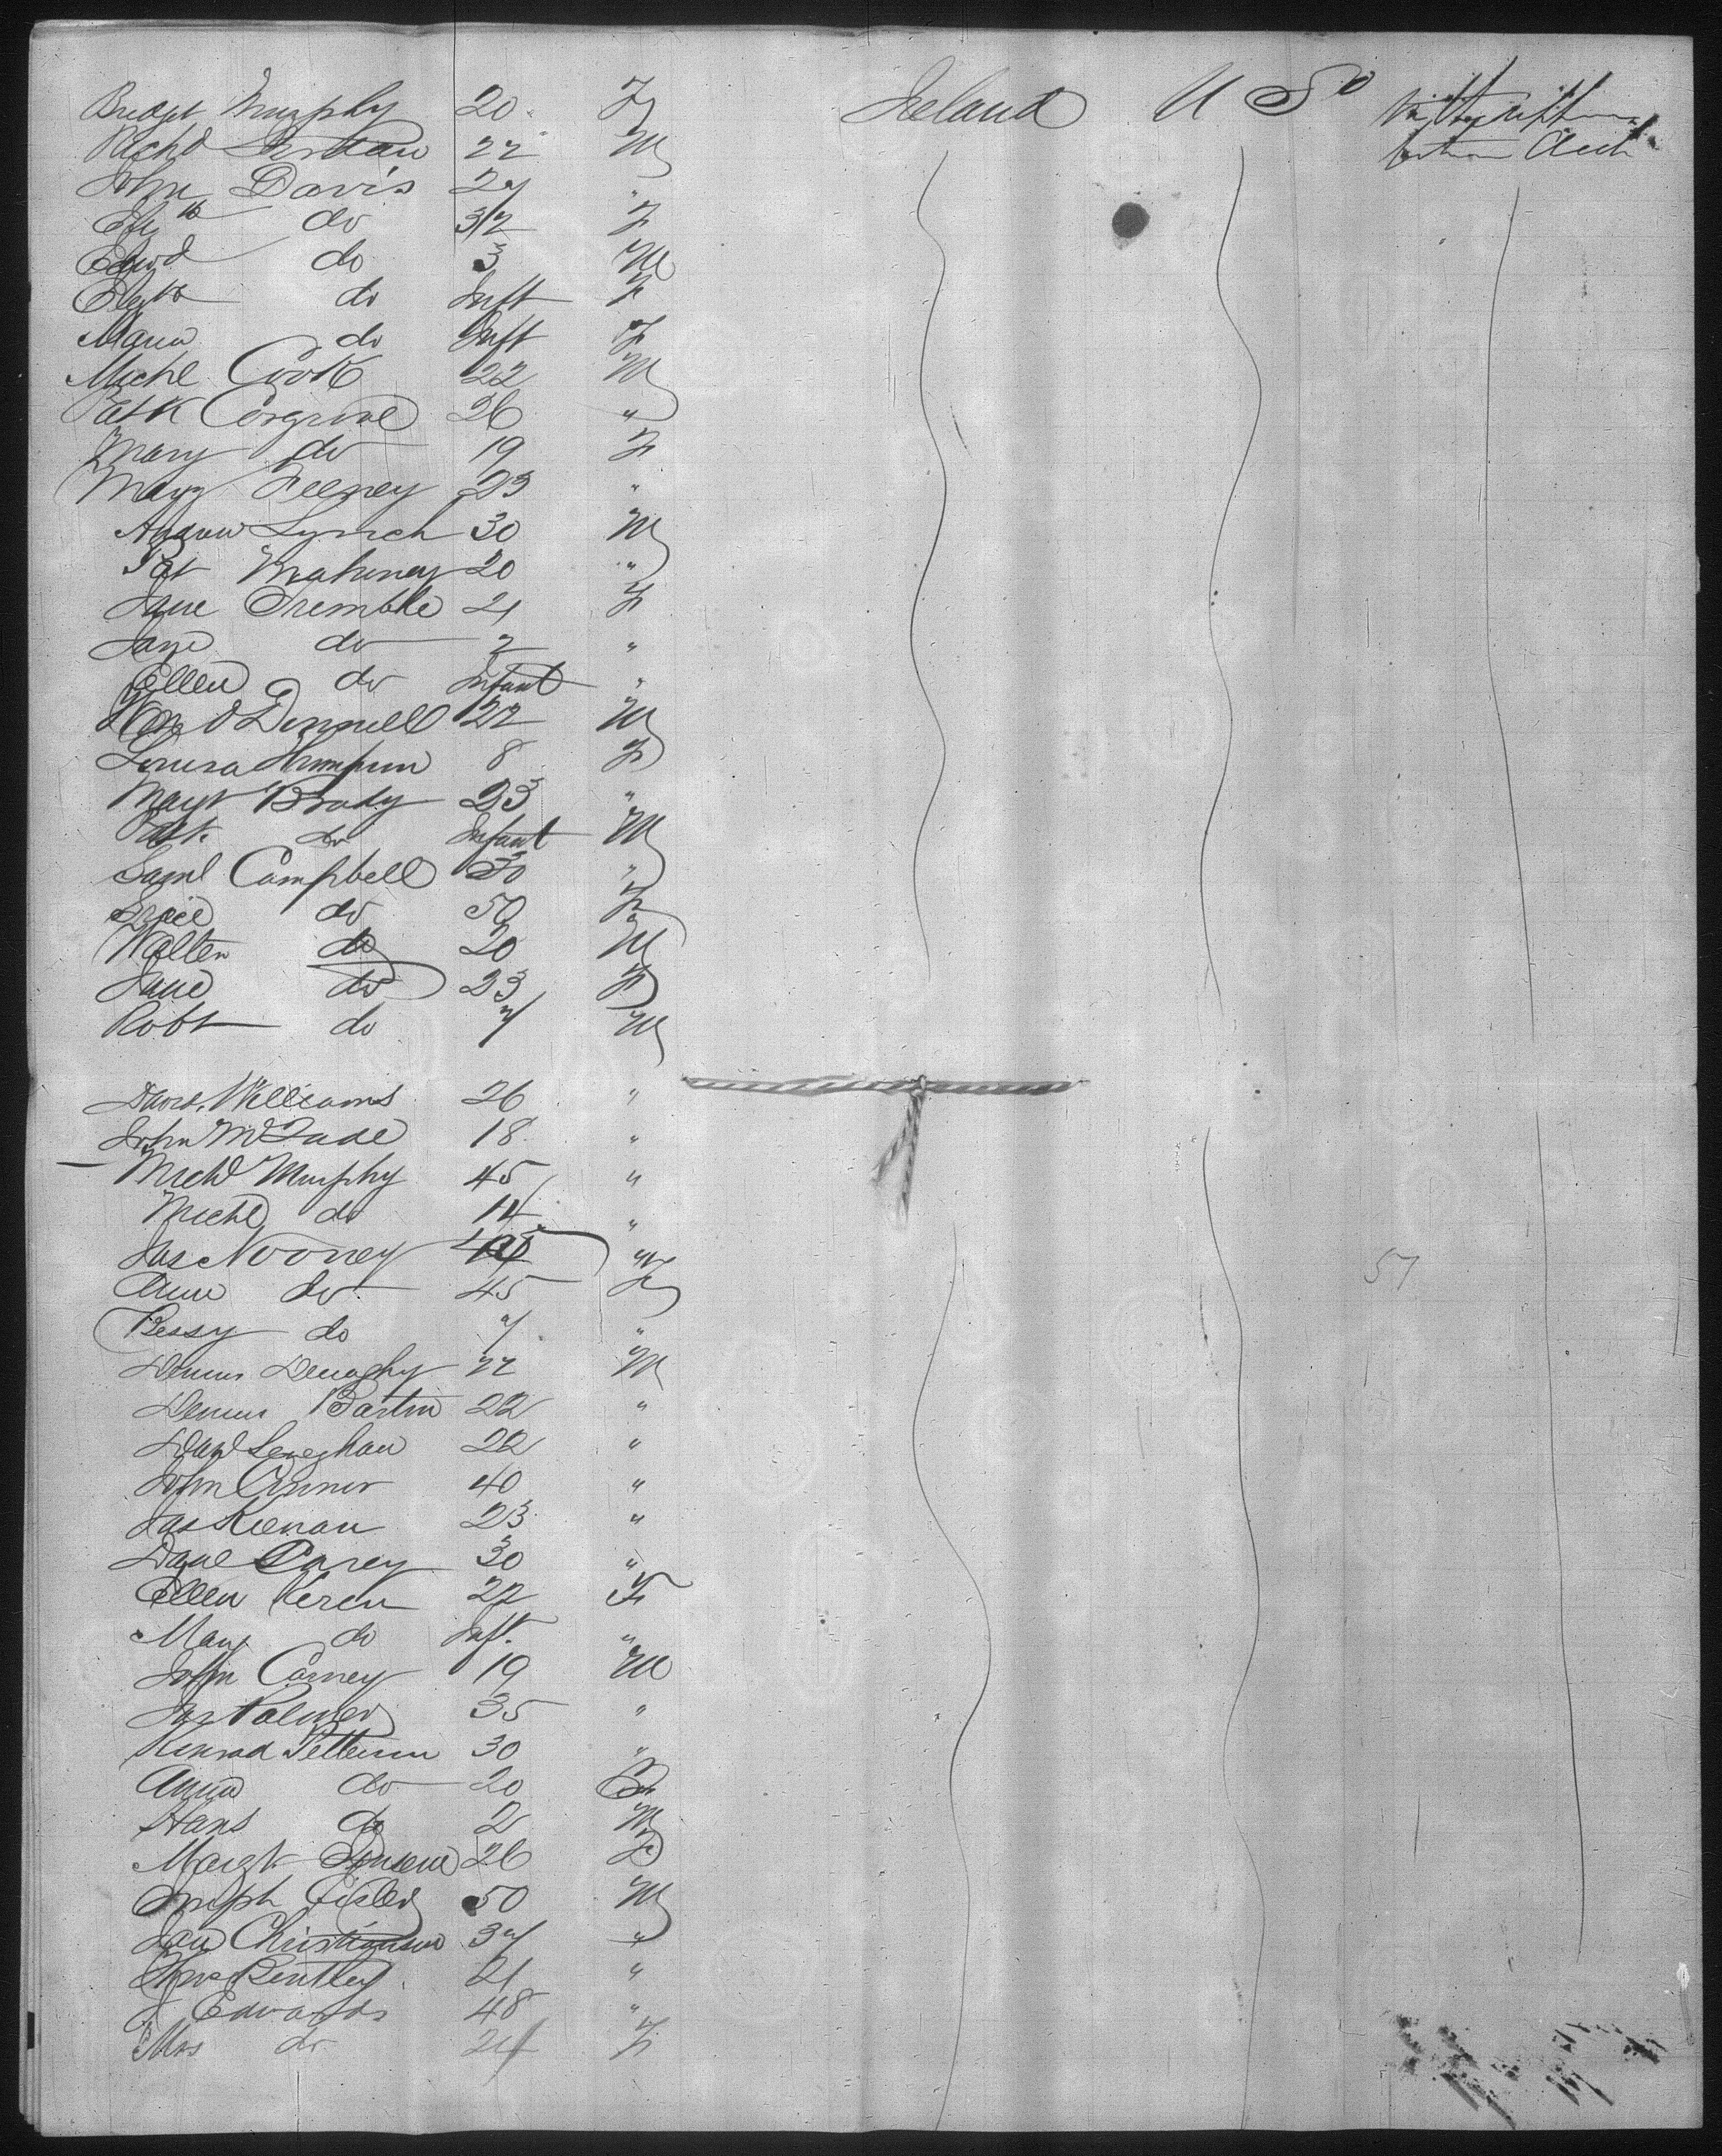 Bridget Murphy 20 F Ireland U S
Richd 22 M
John Davis 27 "
Elizth do 32 F
Edwd do 3 M
Elizth do Inft F
Maria do Inft F
Michl Cook 22 M
Patk Cosgrove 26 "
Mary do 19 F
Mary Feeney 23 "
Andrew Lynch 30 M
Pat Mahoney 20 "
Jane Tremble 21 F
Jane do 2 "
Ellen do Infant "
Wm O Donnell 22 M
Louisa Thompson 8 F
Margt Brady 23 "
Patk do Infant M
Saml Campbell 50 "
Grace do 50 F
Walter do 20 M
Jane do 23 F
Robt do 7 M
David Williams 26 "
John McDade 18 "
Michl Murphy 45 "
Michl do 14 "
Jas Nooney 45 M
Ann do 45 F
Bessy do 7 "
Dennis Denaghy 22 M
Dennis Bartin 22 "
Danl Leneghan 22 "
John Connor 40 "
Jas Keenan 23 "
Danl Carey 30 "
Ellen Keren 22 F
Mary do Inft "
John Carney 19 M
Jas Palmer 35 "
Konrad Petterson 30 "
Anna do 20 F
Hans do 2 M
Margt 26 F
Joseph 50 M
Christianson 37 "
Thos Bentley 21 "
J Edwards 48 "
Mrs do 24 F
57